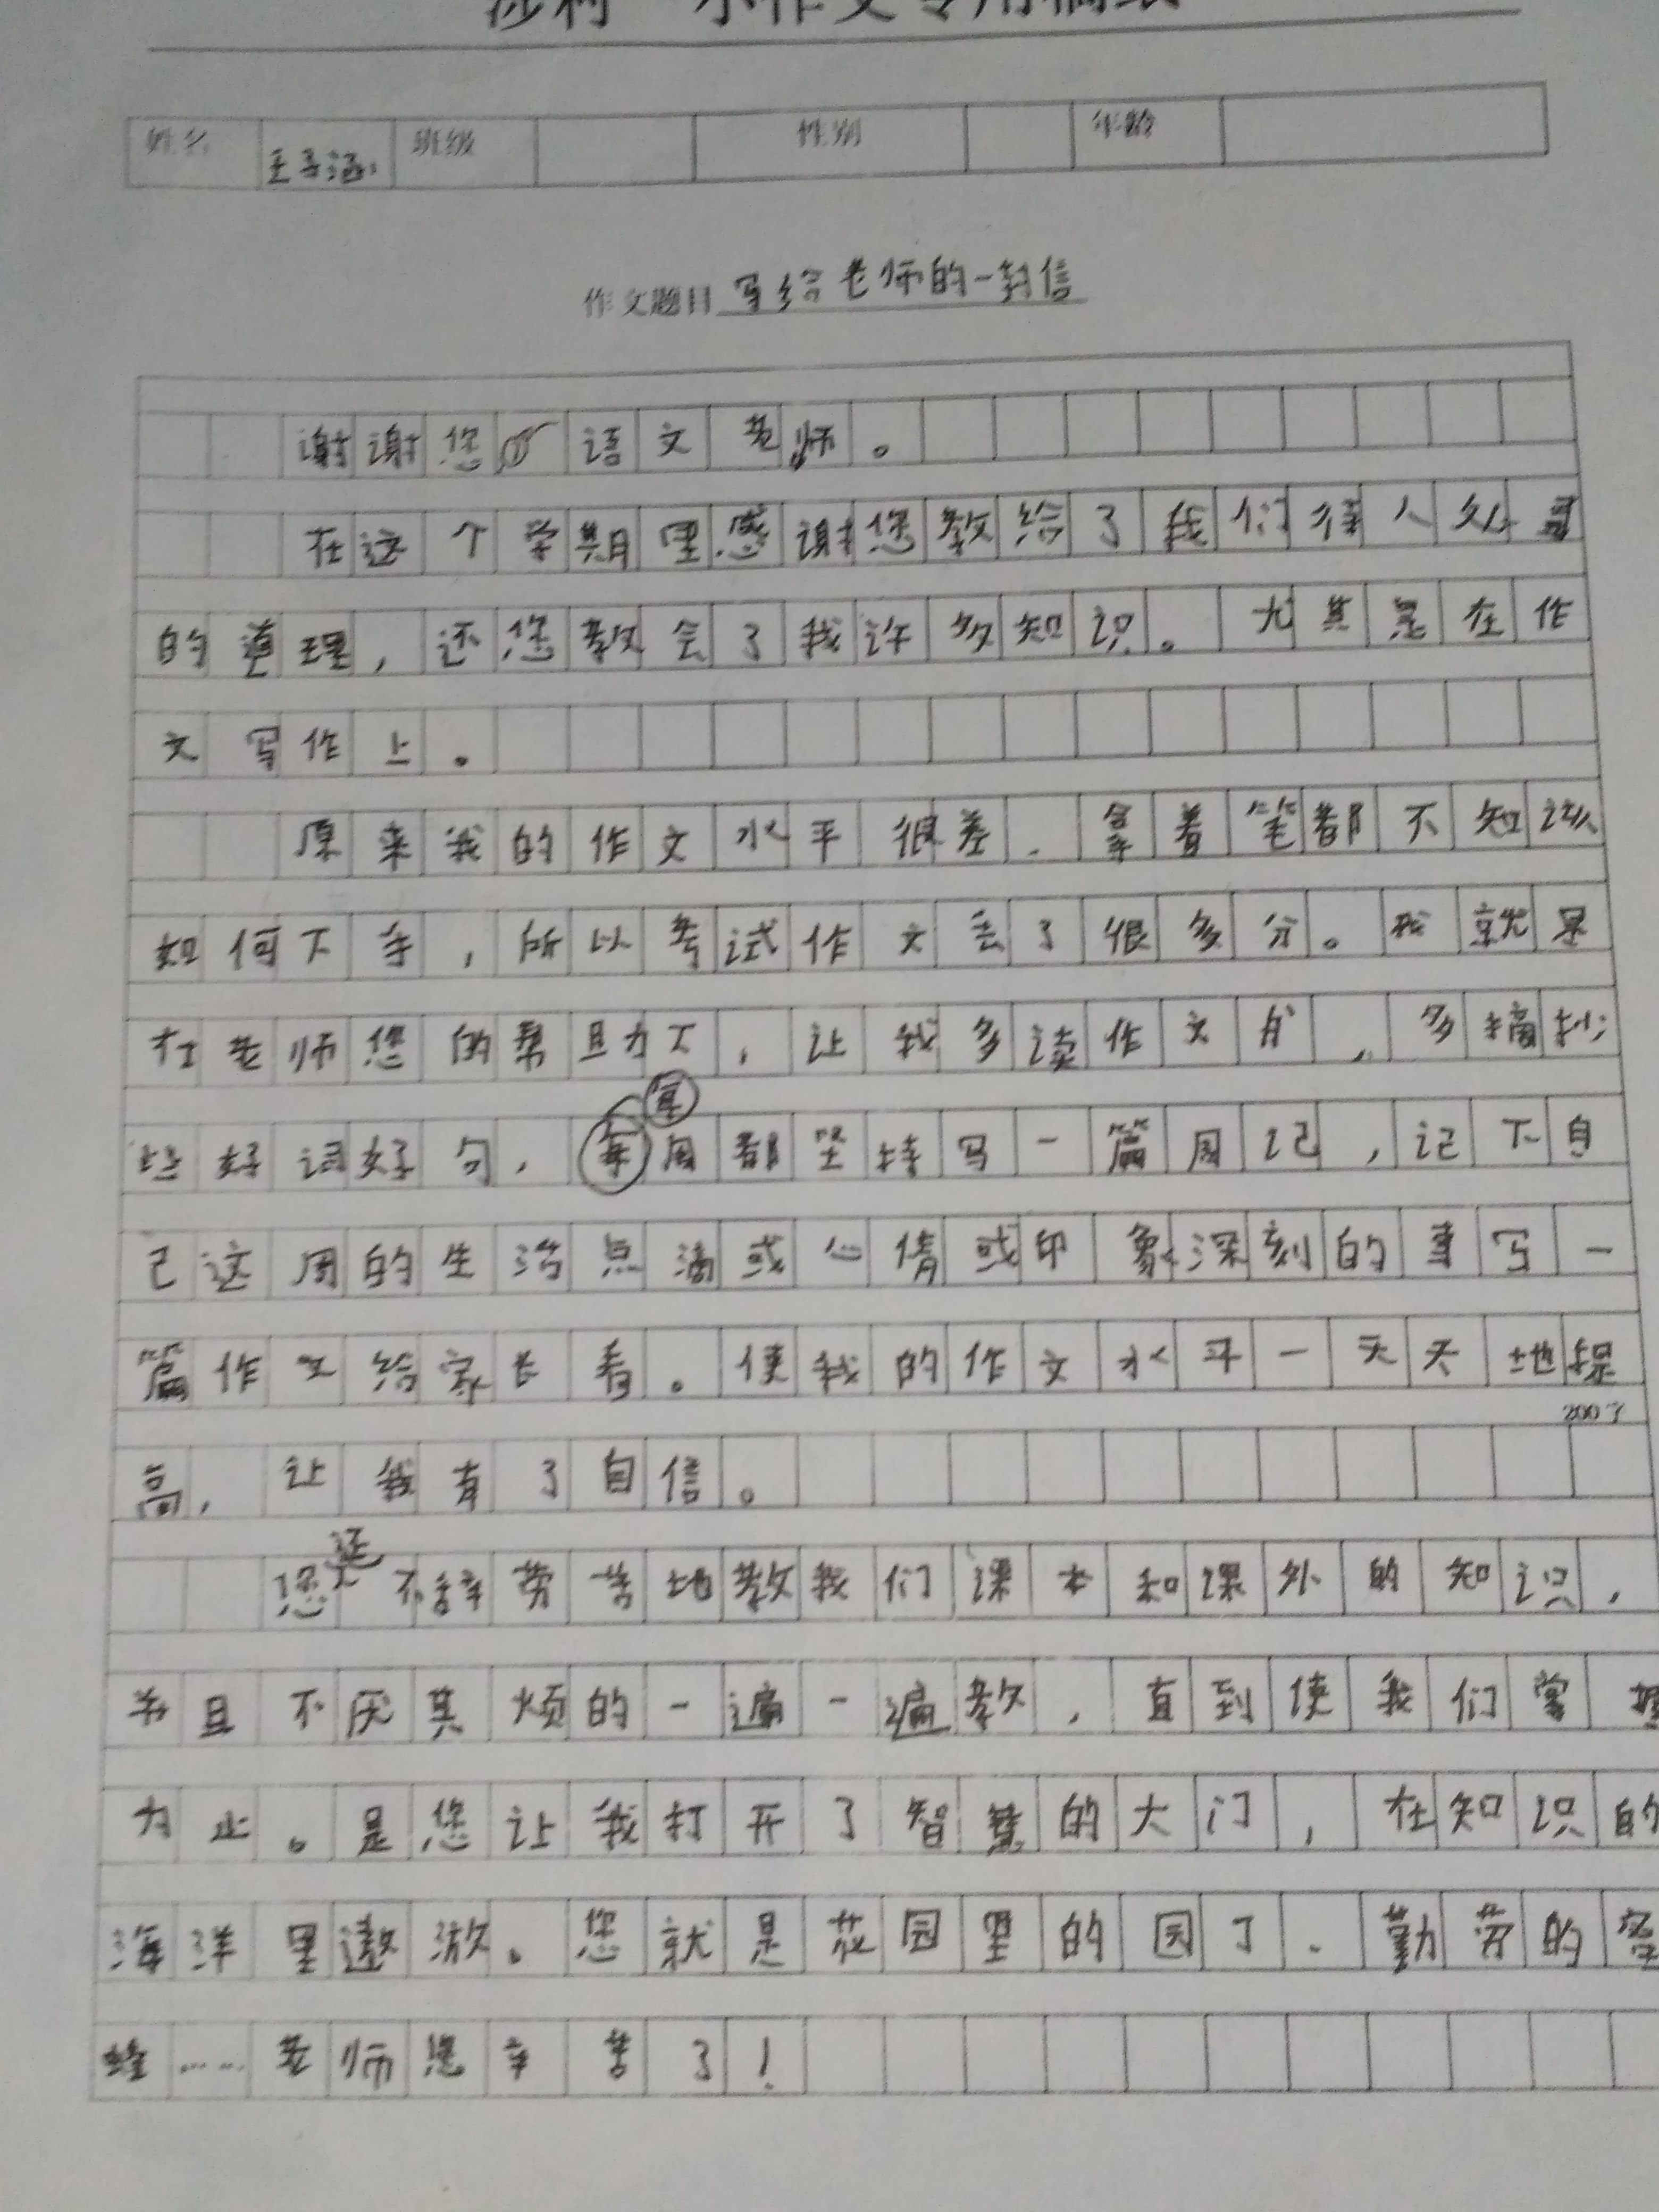 小作文专用稿纸
姓名 王子涵 班级 性别 年龄
作文题目 写给老师的一封信
谢谢您语文老师。
在这个学期里感谢您教给了我们待人处事
的道理，还您教会了我许多知识。尤其是在作
文写作上。
原来我的作文水平很差．拿着笔都不知该
如何下手，所以考试作文丢了很多分。我就是
在老师您的帮助下，让我多读作文书，多摘抄
些好词好句，每周都坚持写一篇周记，记下自
每
己这周的生活点滴或心情或印象深刻的事写一
篇作文给家长看。使我的作文水平一天天地提
200字
高，让我有了自信。
您还不辞劳苦地教我们课本和课外的知识，
并且不厌其烦的一遍一遍教，直到使我们掌握
为止。是您让我打开了智慧的大门，在知识的
海洋里遨游。您就是花园里的园丁．勤劳的蜜
蜂……老师您辛苦了！